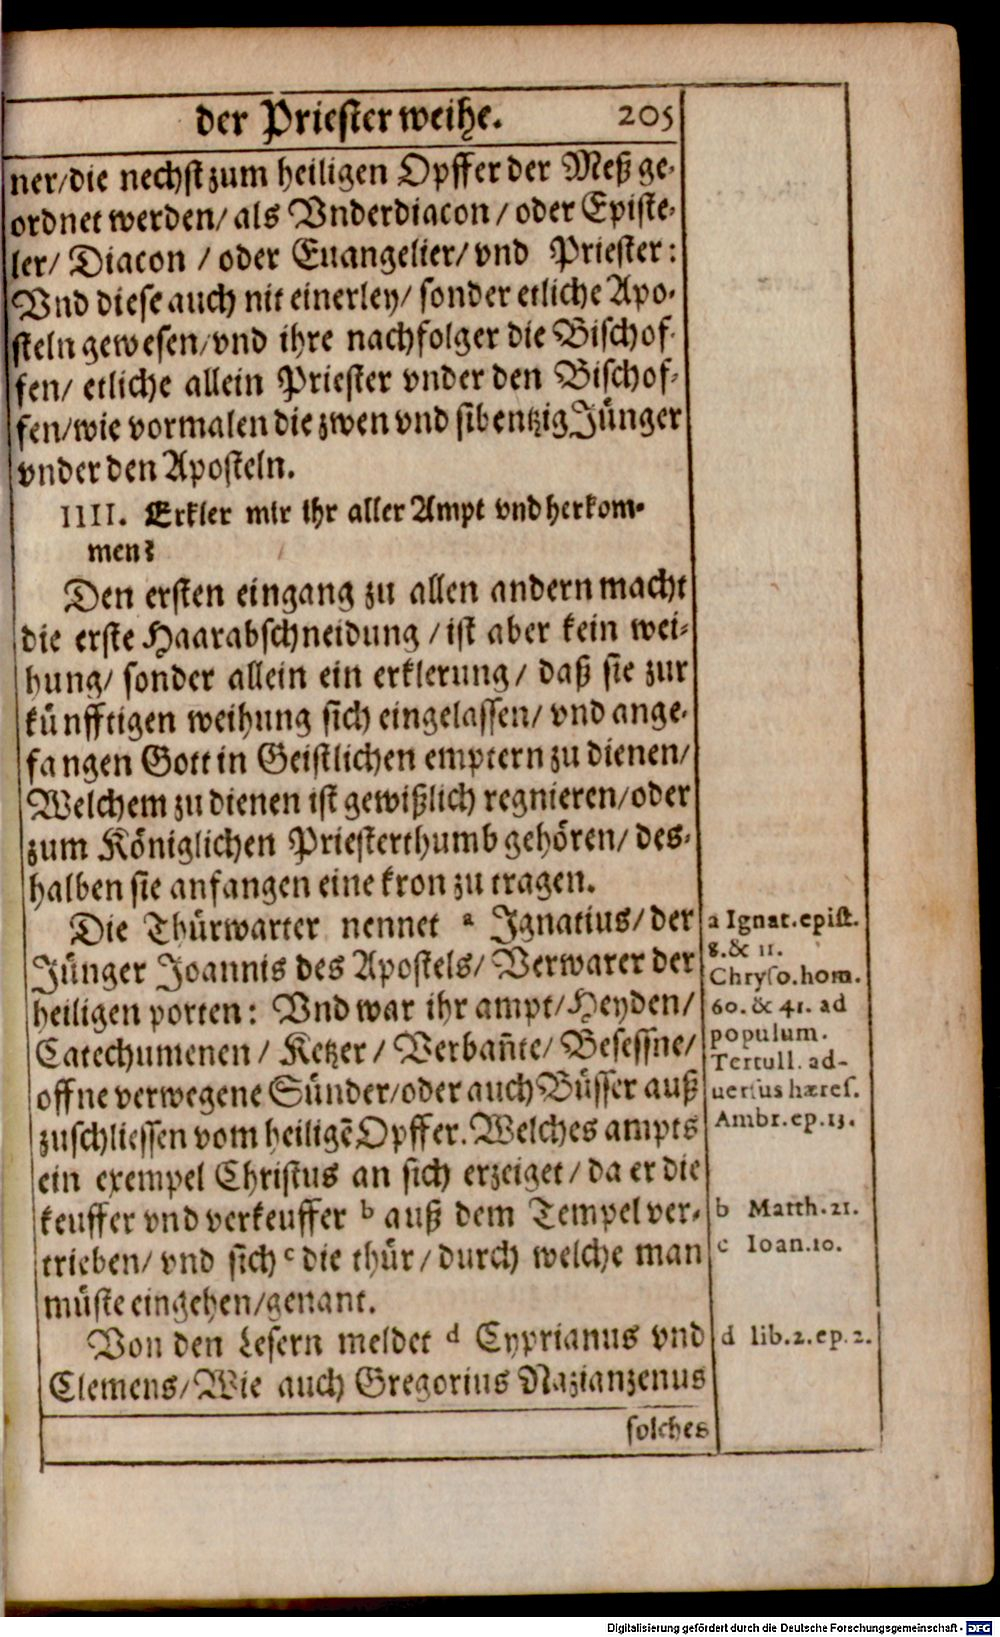 der Priester weihe. 205
ner/die nechst zum heiligen Opffer der Meß ge-
ordnet werden/ als Vnderdiacon / oder Episte-
ler/ Diacon / oder Euangelier/ vnd Priester:
Vnd diese auch nit einerley/ sonder etliche Apo-
steln gewesen/vnd ihre nachfolger die Bischof-
fen/ etliche allein Priester vnder den Bischof-
fen/wie vormalen die zwen vnd sibentzig Jünger
vnder den Aposteln.
IIII. Erkler mir ihr aller Ampt vnd herkom-
men?
Den ersten eingang zu allen andern macht
die erste Haarabschneidung / ist aber kein wei-
hung/ sonder allein ein erklerung/ daß sie zur
künfftigen weihung sich eingelassen/ vnd ange-
fangen Gott in Geistlichen emptern zu dienen/
Welchem zu dienen ist gewißlich regnieren/oder
zum Königlichen Priesterthumb gehören/ des-
halben sie anfangen eine kron zu tragen.
Die Thürwarter nennet a Ignatius/ der
Jünger Joannis des Apostels/ Verwarer der
heiligen porten: Vnd war ihr ampt/Heyden/
Catechumenen / Ketzer / Verbañte/ Besessne/
offne verwegene Sünder/oder auch Büsser auß
zuschliessen vom heiligẽ Opffer. Welches ampts
ein exempel Christus an sich erzeiget/ da er die
keuffer vnd verkeuffer b auß dem Tempel ver-
trieben/ vnd sich c die thür/ durch welche man
müste eingehen/genant.
Von den Lesern meldet d Cyprianus vnd
Clemens/Wie auch Gregorius Nazianzenus
solches
a Ignat. epist.
8. & 11.
Chryso. hom.
60. & 41. ad
populum.
Tertull. ad-
uersus hæres.
Ambr. ep. 13.
b Matth. 21.
c Ioan. 10.
d lib. 2. ep. 2.
Digitalisierung gefördert durch die Deutsche Forschungsgemeinschaft - DFG